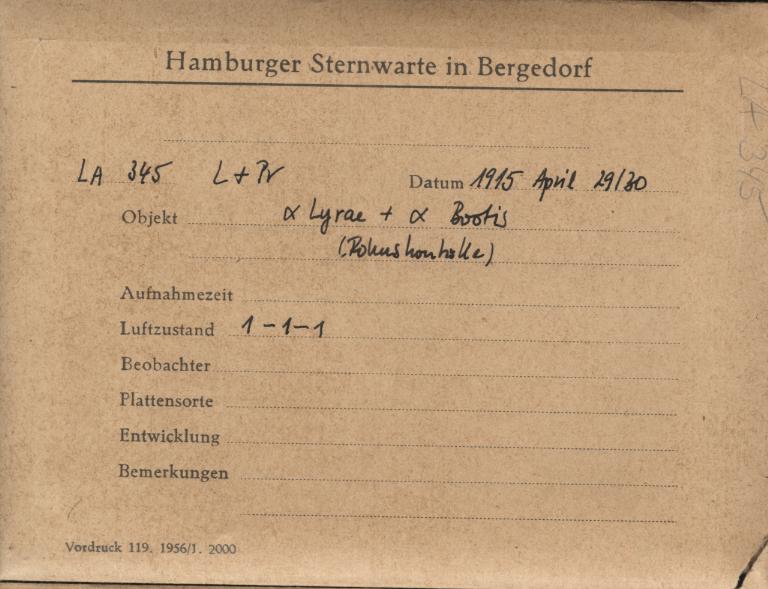 Hamburger Sternwarte in Bergedorf
LA 345 L + Pr Datum 1915 April 29/30
Objekt α Lyrae + α Bootis
(Fokuskontrolle)
Aufnahmezeit
Luftzustand 1-1-1
Beobachter
Plattensorte
Entwicklung
Bemerkungen
Vordruck 119. 1956/1. 2000
LA 345